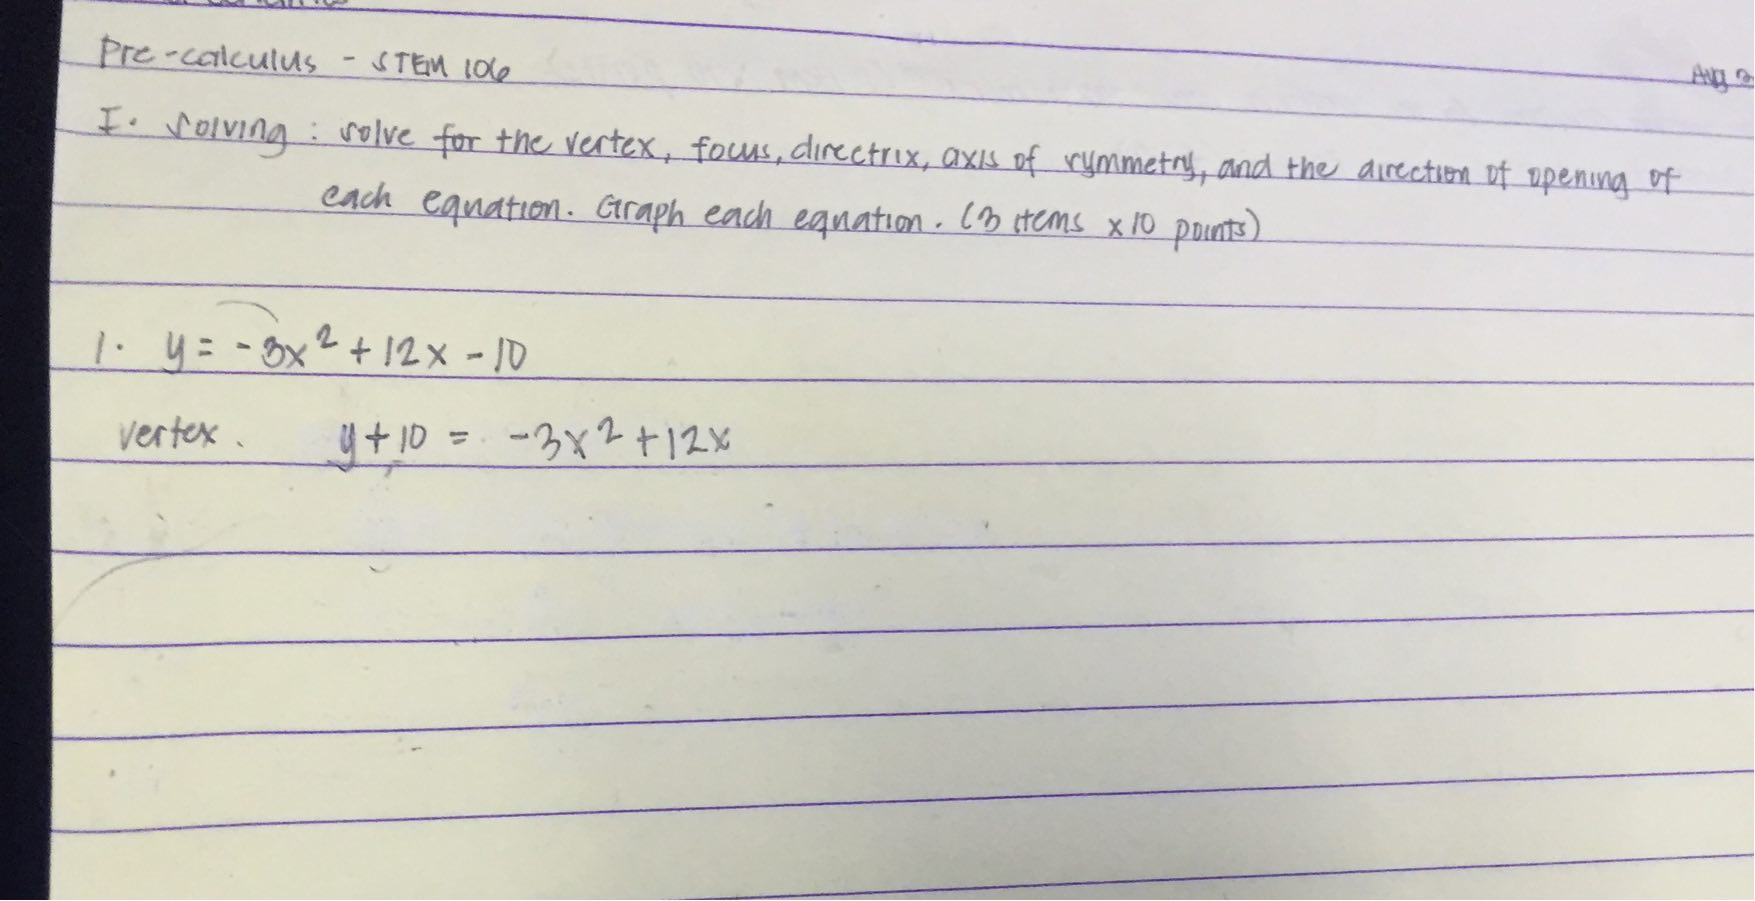 Pre-calculus - STEM 106
Aug
I. Solving : solve for the vertex, focus, directrix, axis of symmetry, and the direction of opening of
each equation. Graph each equation. (3 items x 10 points)
1. y = -3x² + 12x - 10
vertex. y + 10 = -3x² + 12x